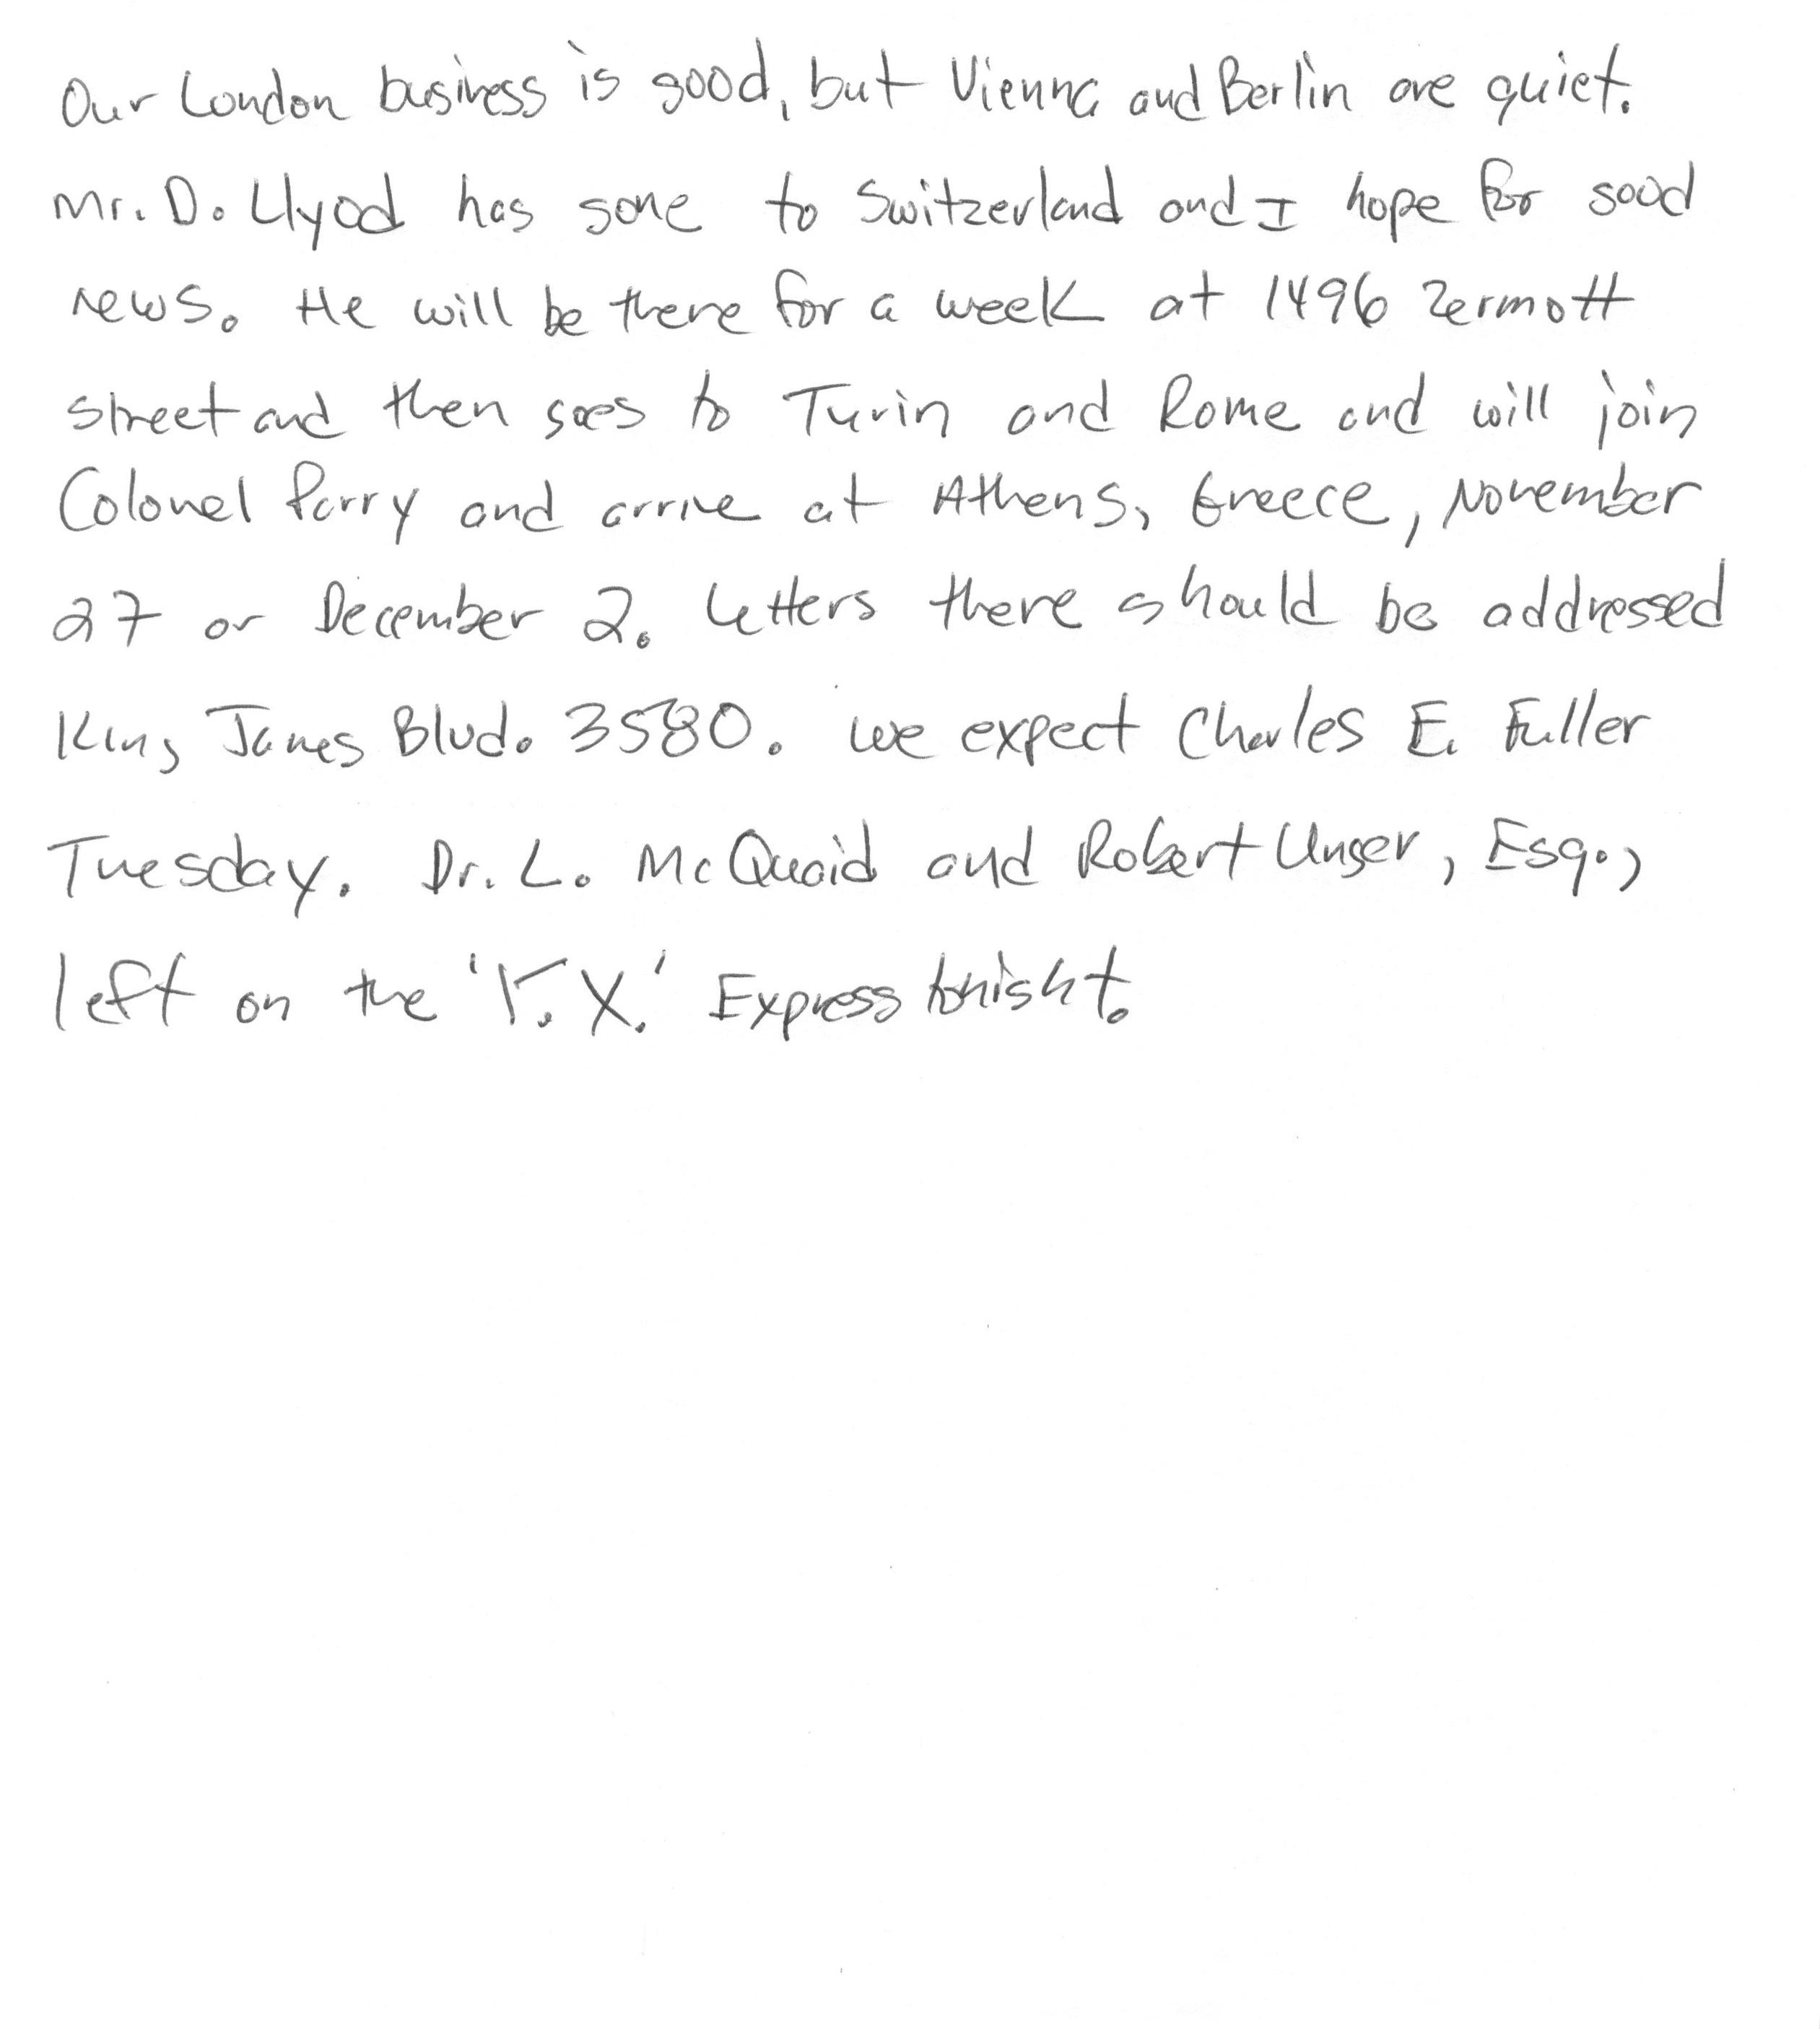 Our London business is good, but Vienna and Berlin are quiet.
Mr. D. Llyod has gone to Switzerland and I hope for good
news. He will be there for a week at 1496 Zermott
street and then goes to Turin and Rome and will join
Colonel Parry and arrive at Athens, Greece, November
27 or December 2. Letters there should be addressed
King James Blvd. 3580. We expect Charles E. Fuller
Tuesday. Dr. L. McQuaid and Robert Unger, Esq.,
left on the 'Y.X.' Express tonight.